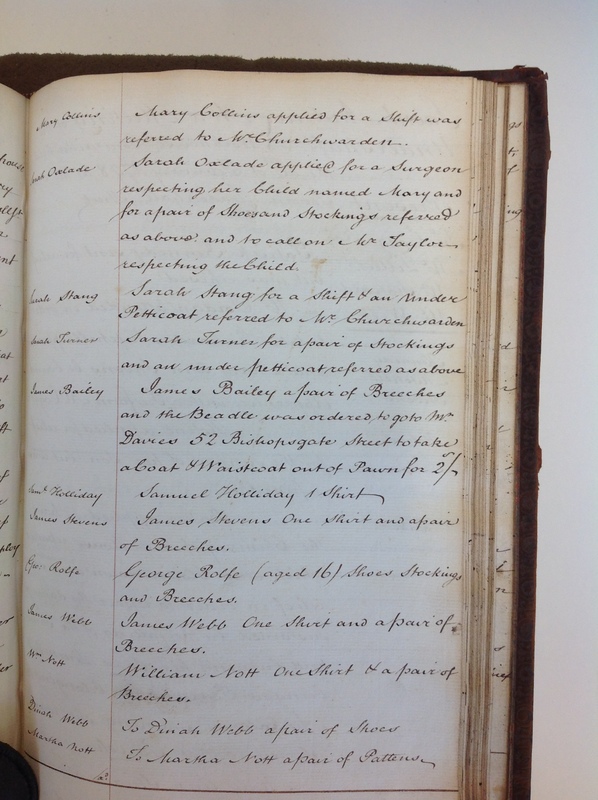 Mary Collins
Mary Collins applied for a Shift was
referred to Mr. Churchwarden.
Oxlade
Sarah Oxlade applied for a Surgeon
respecting her Child named Mary and
for a pair of Shoes and Stockings referred
as above and to call on Mr Taylor
respecting the Child.
Sarah Stang
Sarah Stang for a Shift & an under
Petticoat referred to Mr. Churchwarden
Sarah Turner
Sarah Turner for a pair of Stockings
and an under petticoat referred as above
James Bailey
James Bailey a pair of Breeches
and the Beadle was ordered to go to Mr.
Davies 52 Bishopsgate Street to take
a Coat & Waistcoat out of Pawn for 2/
Saml. Holliday
Samuel Holliday 1 Shirt
James Stevens
James Stevens One Shirt and a pair
of Breeches.
Geo. Rolfe
George Rolfe (aged 16) Shoes Stockings
and Breeches.
James Webb
James Webb One Shirt and a pair of
Breeches.
Wm. Nott
William Nott One Shirt & a pair of
Breeches.
Dinah Webb
To Dinah Webb a pair of Shoes
Martha Nott
To Martha Nott a pair of Pattens